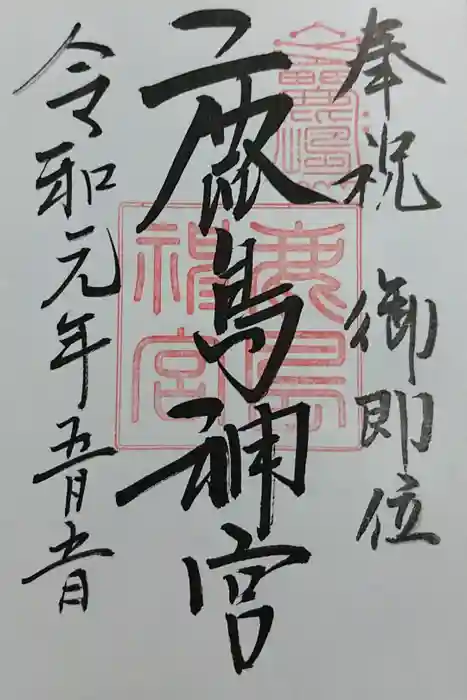 奉祝 御即位
鹿島神宮
令和元年五月五日
鹿島神宮